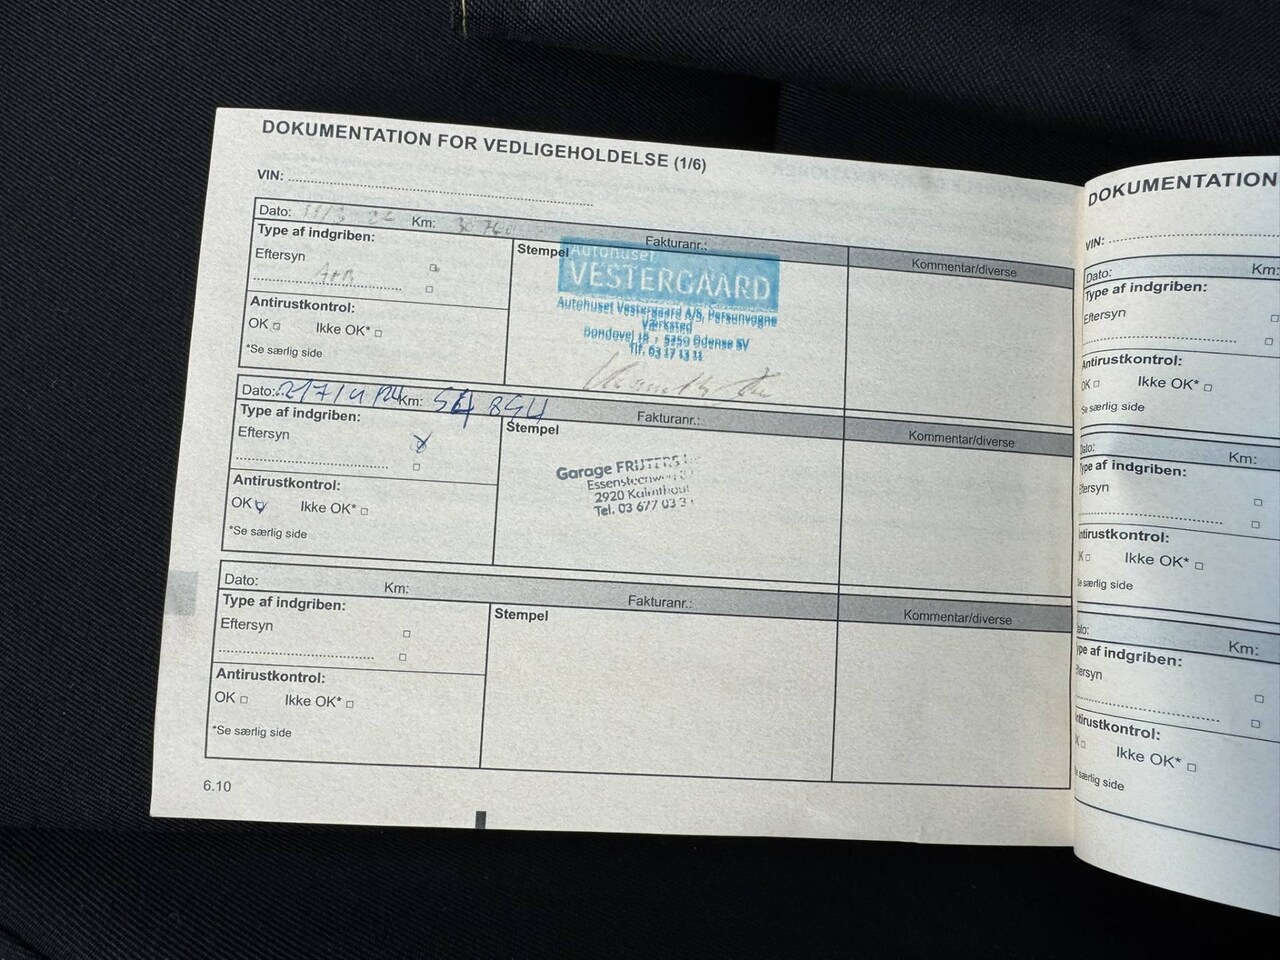 DOKUMENTATION FOR VEDLIGEHOLDELSE (1/6)
VIN:
Dato: Km: 30 760 Fakturanr.:
Type af indgriben:
Stempel
Kommentar/diverse
Eftersyn
A+B
Antirustkontrol:
OK Ikke OK*
*Se særlig side
Autohuset
VESTERGAARD
Autohuset Vestergaard A/S, Personvogne
Værksted
Bondovej 18 · 5250 Odense SV
Tlf. 63 17 13 11
Dato: Km: Fakturanr.:
Type af indgriben:
Stempel
Kommentar/diverse
Eftersyn
Antirustkontrol:
OK Ikke OK*
*Se særlig side
Garage FRIJTERS
2920 Kalmthout
Tel. 03 677 03
Dato:
Km:
Fakturanr.:
Type af indgriben:
Stempel
Kommentar/diverse
Eftersyn
Antirustkontrol:
OK Ikke OK*
*Se særlig side
6.10
DOKUMENTATION
VIN:
Dato: Km:
Type af indgriben:
Eftersyn
Antirustkontrol:
OK Ikke OK*
Se særlig side
Dato: Km:
Type af indgriben:
Eftersyn
Antirustkontrol:
OK Ikke OK*
Se særlig side
Dato: Km:
Type af indgriben:
Eftersyn
Antirustkontrol:
OK Ikke OK*
Se særlig side